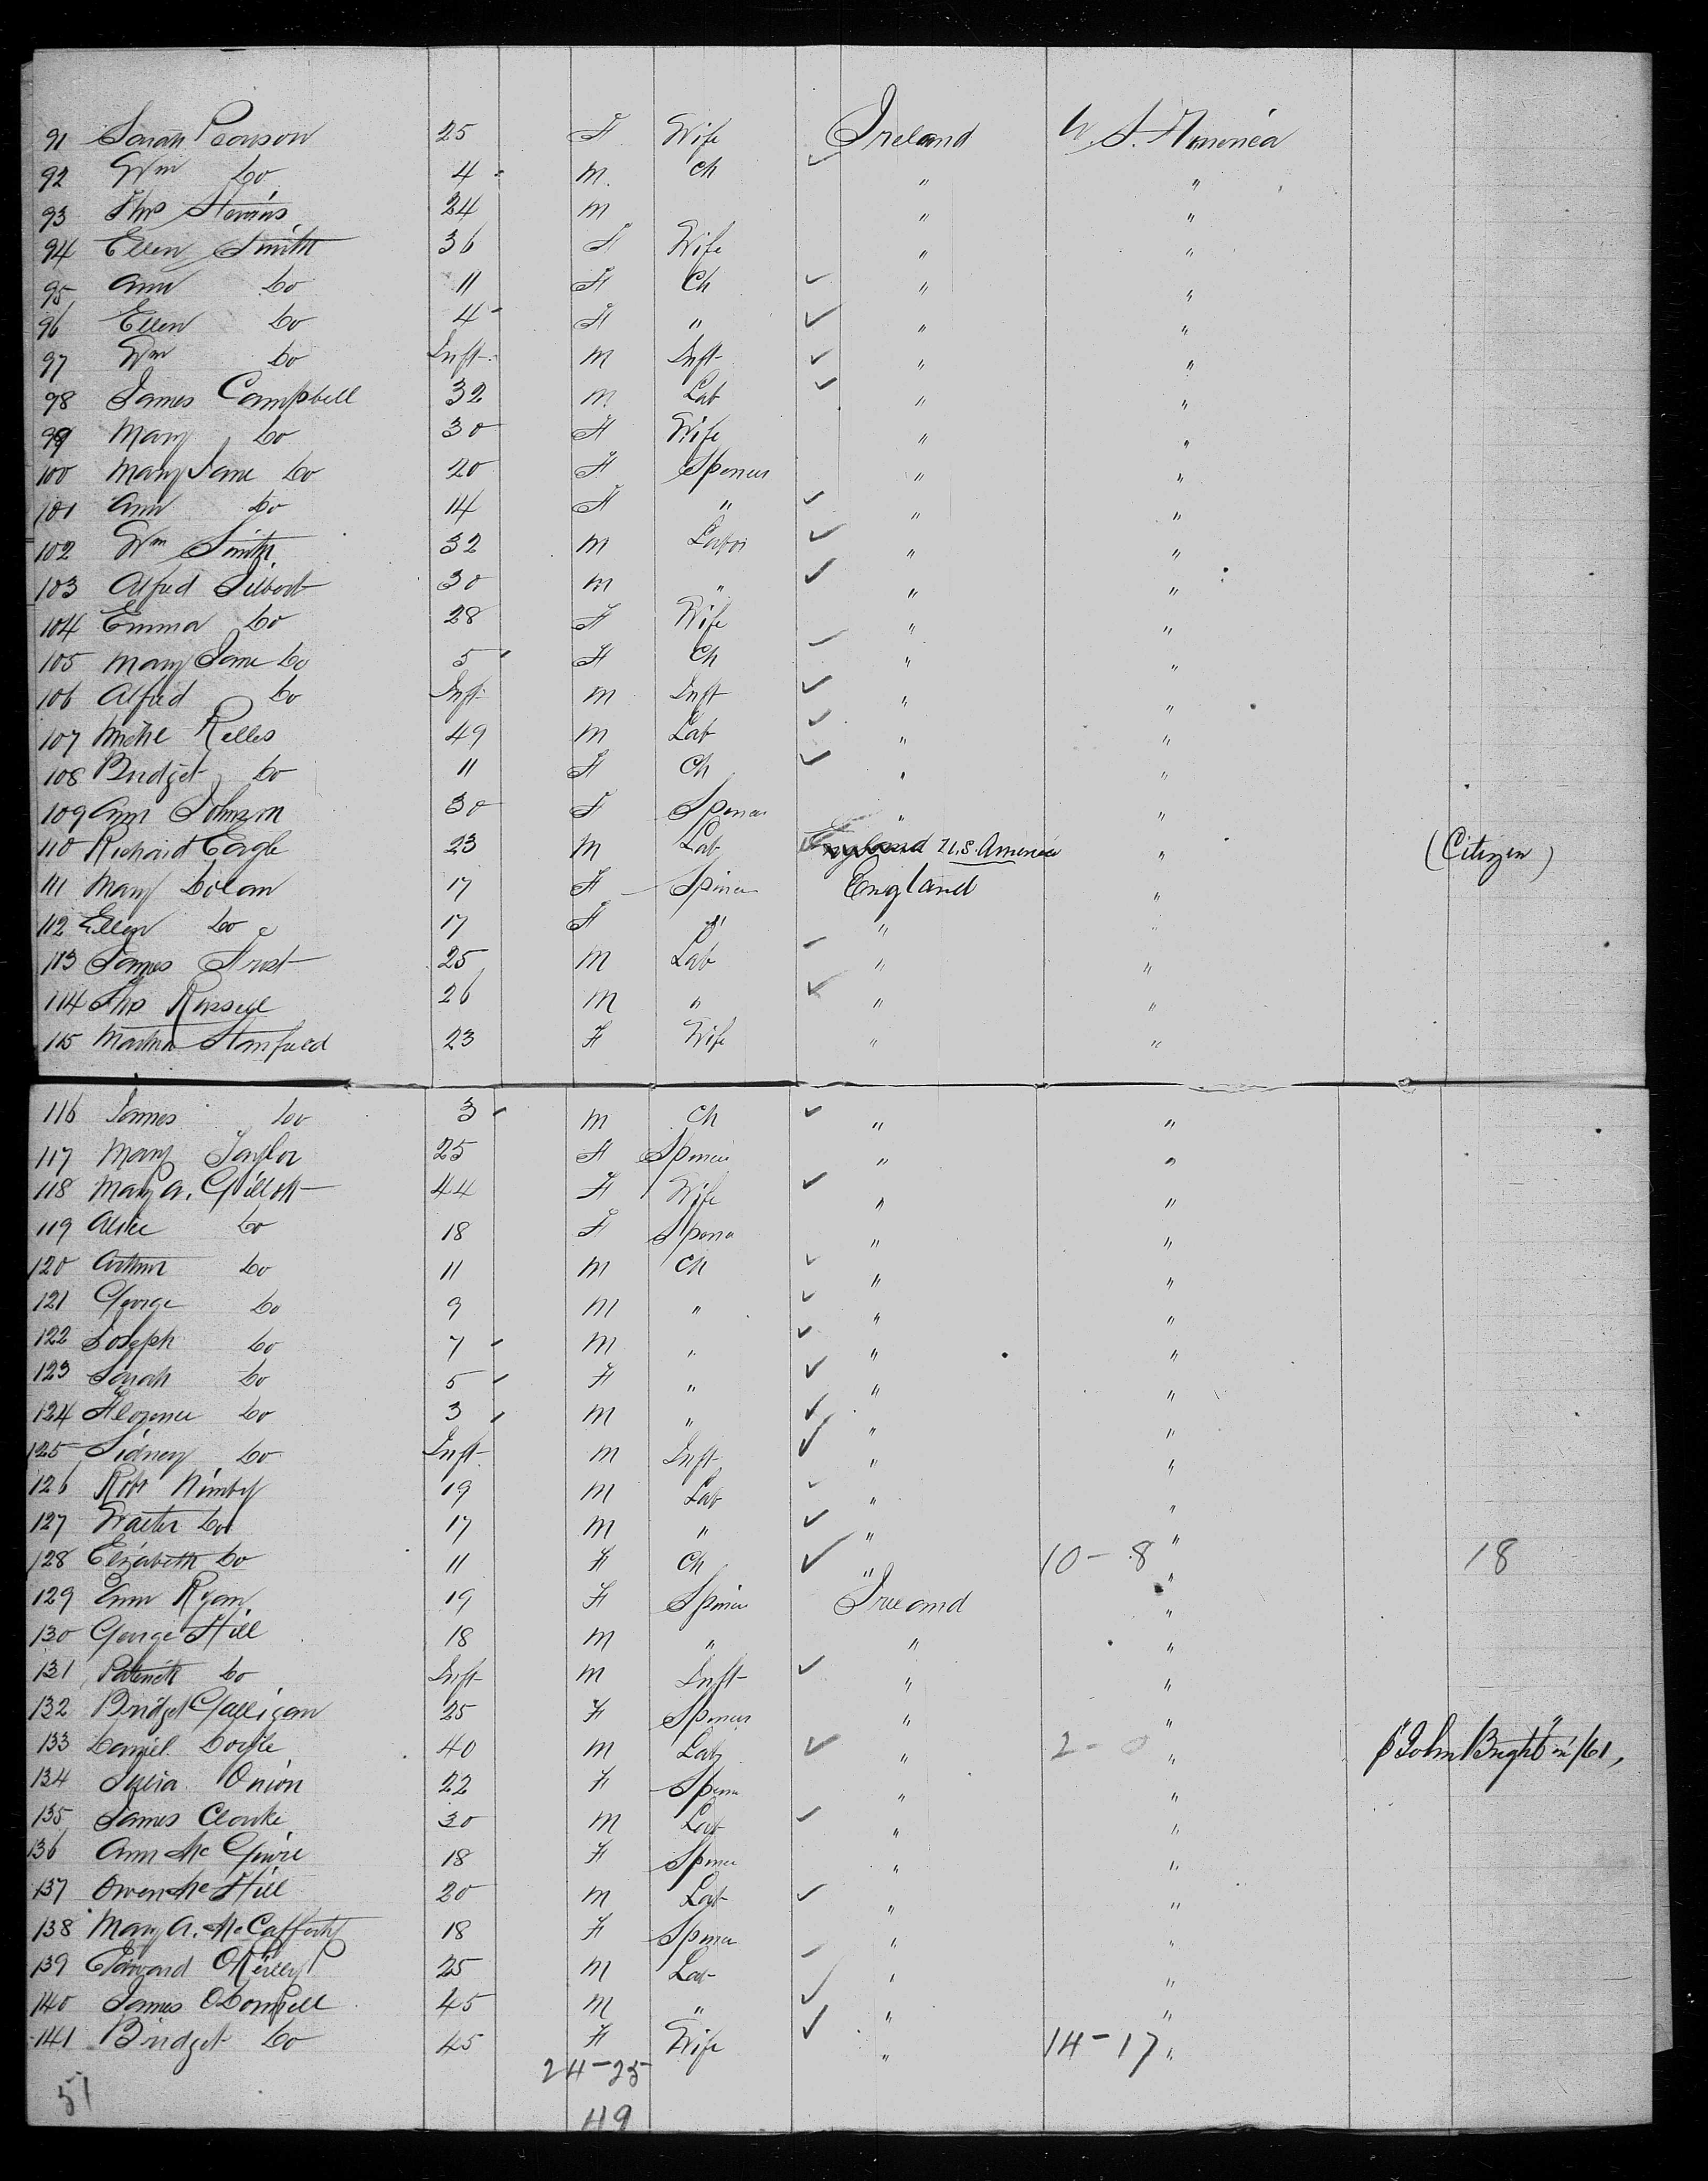 91 Sarah Pearson 25 F Wife Ireland U. S. America
92 Wm Do 4 M Ch " "
93 Thos 24 M " "
94 Ellen Smith 36 F Wife " "
95 Ann Do 11 F Ch " "
96 Ellen Do 4 F " " "
97 Wm Do Inft M Inft " "
98 James Campbell 32 M Lab " "
99 Mary Do 30 F Wife " "
100 Mary Jane Do 20 F Spinus " "
101 Ann Do 14 F " " "
102 Wm Smith 32 M Labor " "
103 Alfred 30 M " " "
104 Emma Do 28 F Wife " "
105 Mary Jane Do 5 F Ch " "
106 Alfred Do Inft M Inft " "
107 Miche 49 M Lab " "
108 Bridget Do 11 F Ch " "
109 Ann Johnson 30 F Spinus " "
110 Richard Eagle 23 M Lab England U.S. America " (Citizen)
111 Mary Dolan 17 F Spinus England "
112 Ellen Do 17 F " " "
113 James Frost 25 M Lab " "
114 Thos Russell 26 M " " "
115 Martha Stanfield 23 F Wife " "
116 James Do 3 M Ch " "
117 Mary Taylor 25 F Spinus " "
118 Mary A. Gillott 44 F Wife " "
119 Alice Do 18 F Spins " "
120 Arthur Do 11 M Ch " "
121 George Do 9 M " " "
122 Joseph Do 7 M " " "
123 Sarah Do 5 F " " "
124 Florence Do 3 M " " "
125 Sidney Do Inft M Inft " "
126 Robt 19 M Lab " "
127 Walter Do 17 M " " "
128 Elizabeth Do 11 F Ch " 10-8 " 18
129 Ann Ryan 19 F Spinus Ireland "
130 George Hill 18 M " " "
131 Patrick Do Inft M Inft " "
132 Bridget Galligan 25 F Spinus " "
133 Daniel Doyle 40 M Lab " 2-0 " "John Bright" in /61,
134 Julia Onion 22 F Spins " "
135 James Clouke 30 M Lab " "
136 Ann McGuire 18 F Spinus " "
137 Owen McHill 20 M Lab " "
138 Mary A. McCafferty 18 F Spinus " "
139 Edward OReilly 25 M Lab " "
140 James ODonnell 45 M " " "
141 Bridget Do 45 F Wife " 14-17 "
24-25
51 49